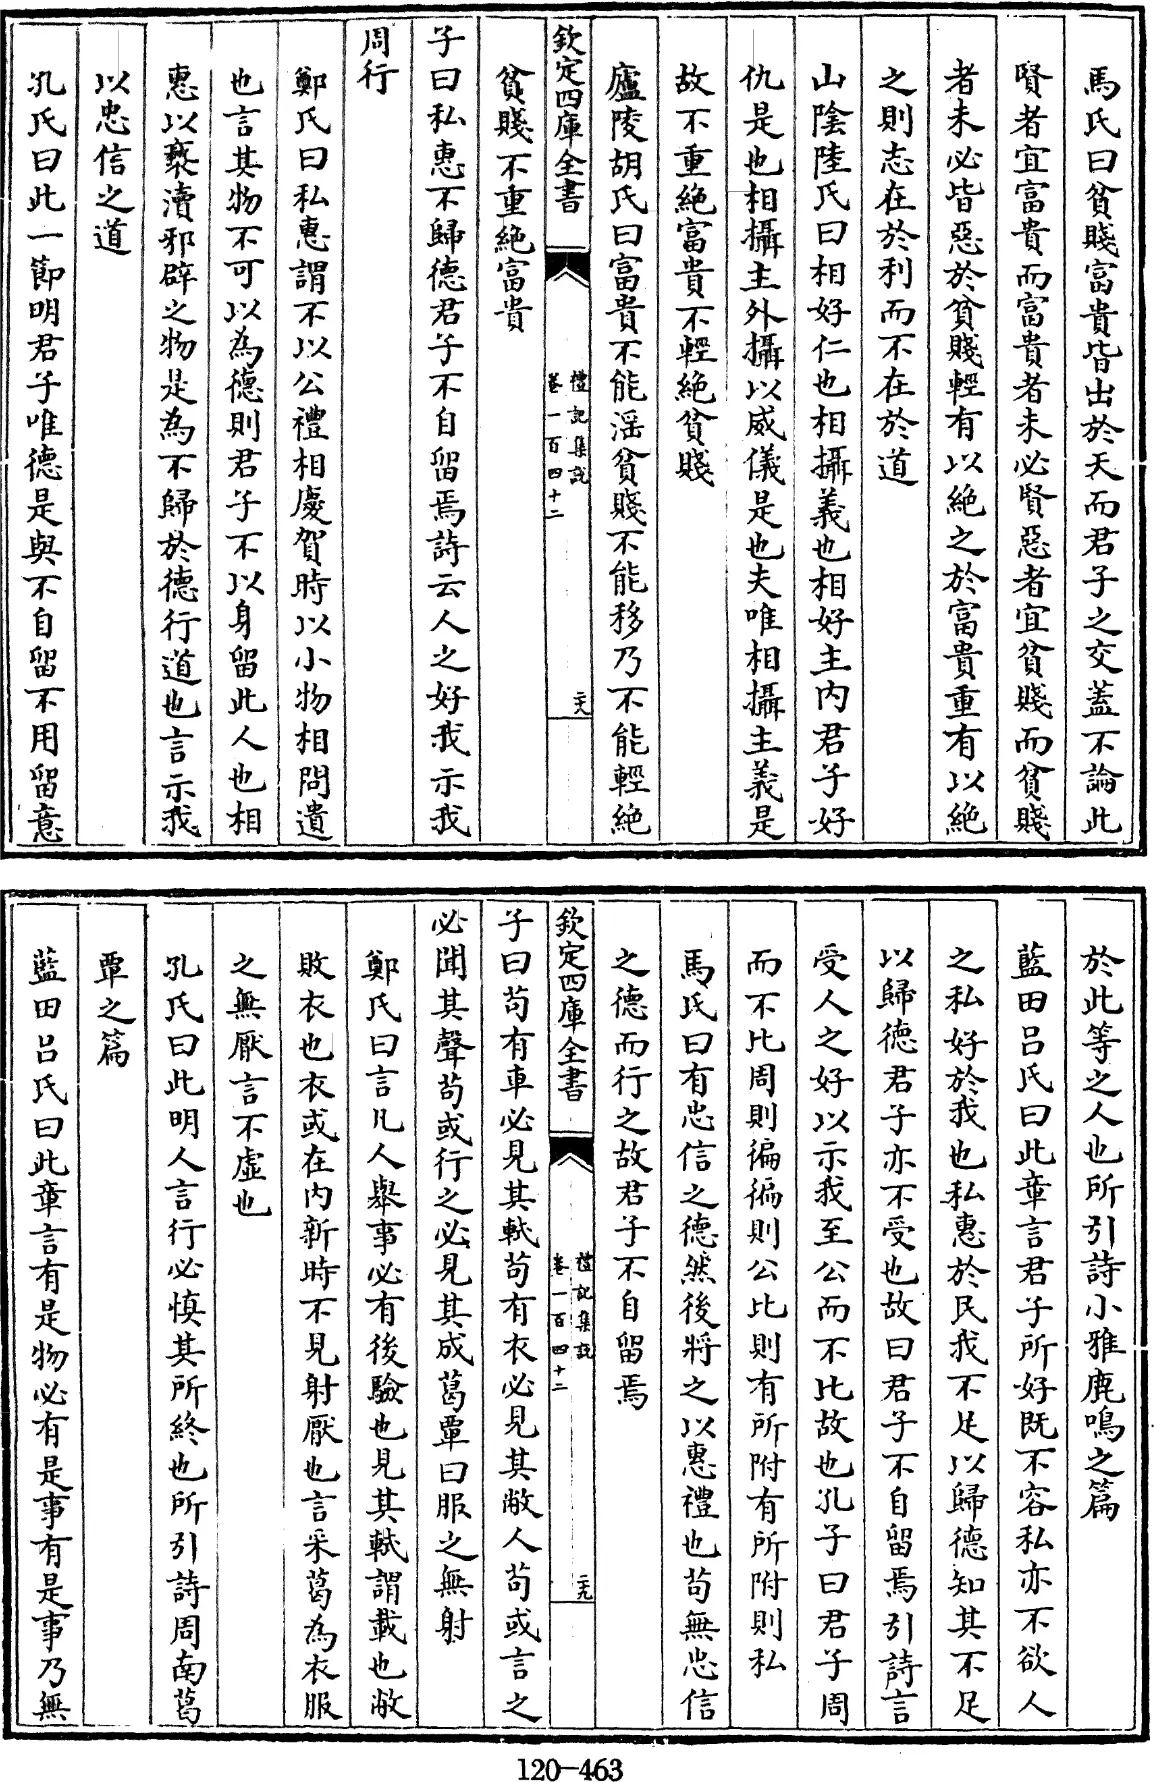 馬氏曰貧賤富貴皆出於天而君子之交蓋不論此
賢者宜富貴而富貴者未必賢惡者宜貧賤而貧賤
者未必皆惡於貧賤輕有以絶之於富貴重有以絶
之則志在於利而不在於道
山陰陸氏曰相好仁也相攝義也相好主内君子好
仇是也相攝主外攝以威儀是也夫唯相攝主義是
故不重絶富貴不輕絶貧賤
廬陵胡氏曰富貴不能滛貧賤不能移乃不能輕絶
欽定四庫全書
禮記集說
卷一百四十二
二六
貧賤不重絶富貴
子曰私惠不歸德君子不自留焉詩云人之好我示我
周行
鄭氏曰私惠謂不以公禮相慶賀時以小物相問遺
也言其物不可以為德則君子不以身留此人也相
惠以䙝瀆邪辟之物是為不歸於德行道也言示我
以忠信之道
孔氏曰此一節明君子唯德是與不自留不用留意
於此等之人也所引詩小雅鹿鳴之篇
藍田吕氏曰此章言君子所好既不容私亦不欲人
之私好於我也私惠於民我不足以歸德知其不足
以歸德君子亦不受也故曰君子不自留焉引詩言
受人之好以示我至公而不比故也孔子曰君子周
而不比周則徧徧則公比則有所附有所附則私
馬氏曰有忠信之德然後將之以惠禮也苟無忠信
之德而行之故君子不自留焉
欽定四庫全書
禮記集說
卷一百四十二
二九
子曰苟有車必見其軾苟有衣必見其敝人苟或言之
必聞其聲苟或行之必見其成葛覃曰服之無射
鄭氏曰言凡人舉事必有後驗也見其軾謂載也敝
敗衣也衣或在内新時不見射厭也言采葛為衣服
之無厭言不虛也
孔氏曰此明人言行必慎其所終也所引詩周南葛
覃之篇
藍田吕氏曰此章言有是物必有是事有是事乃無
120-463